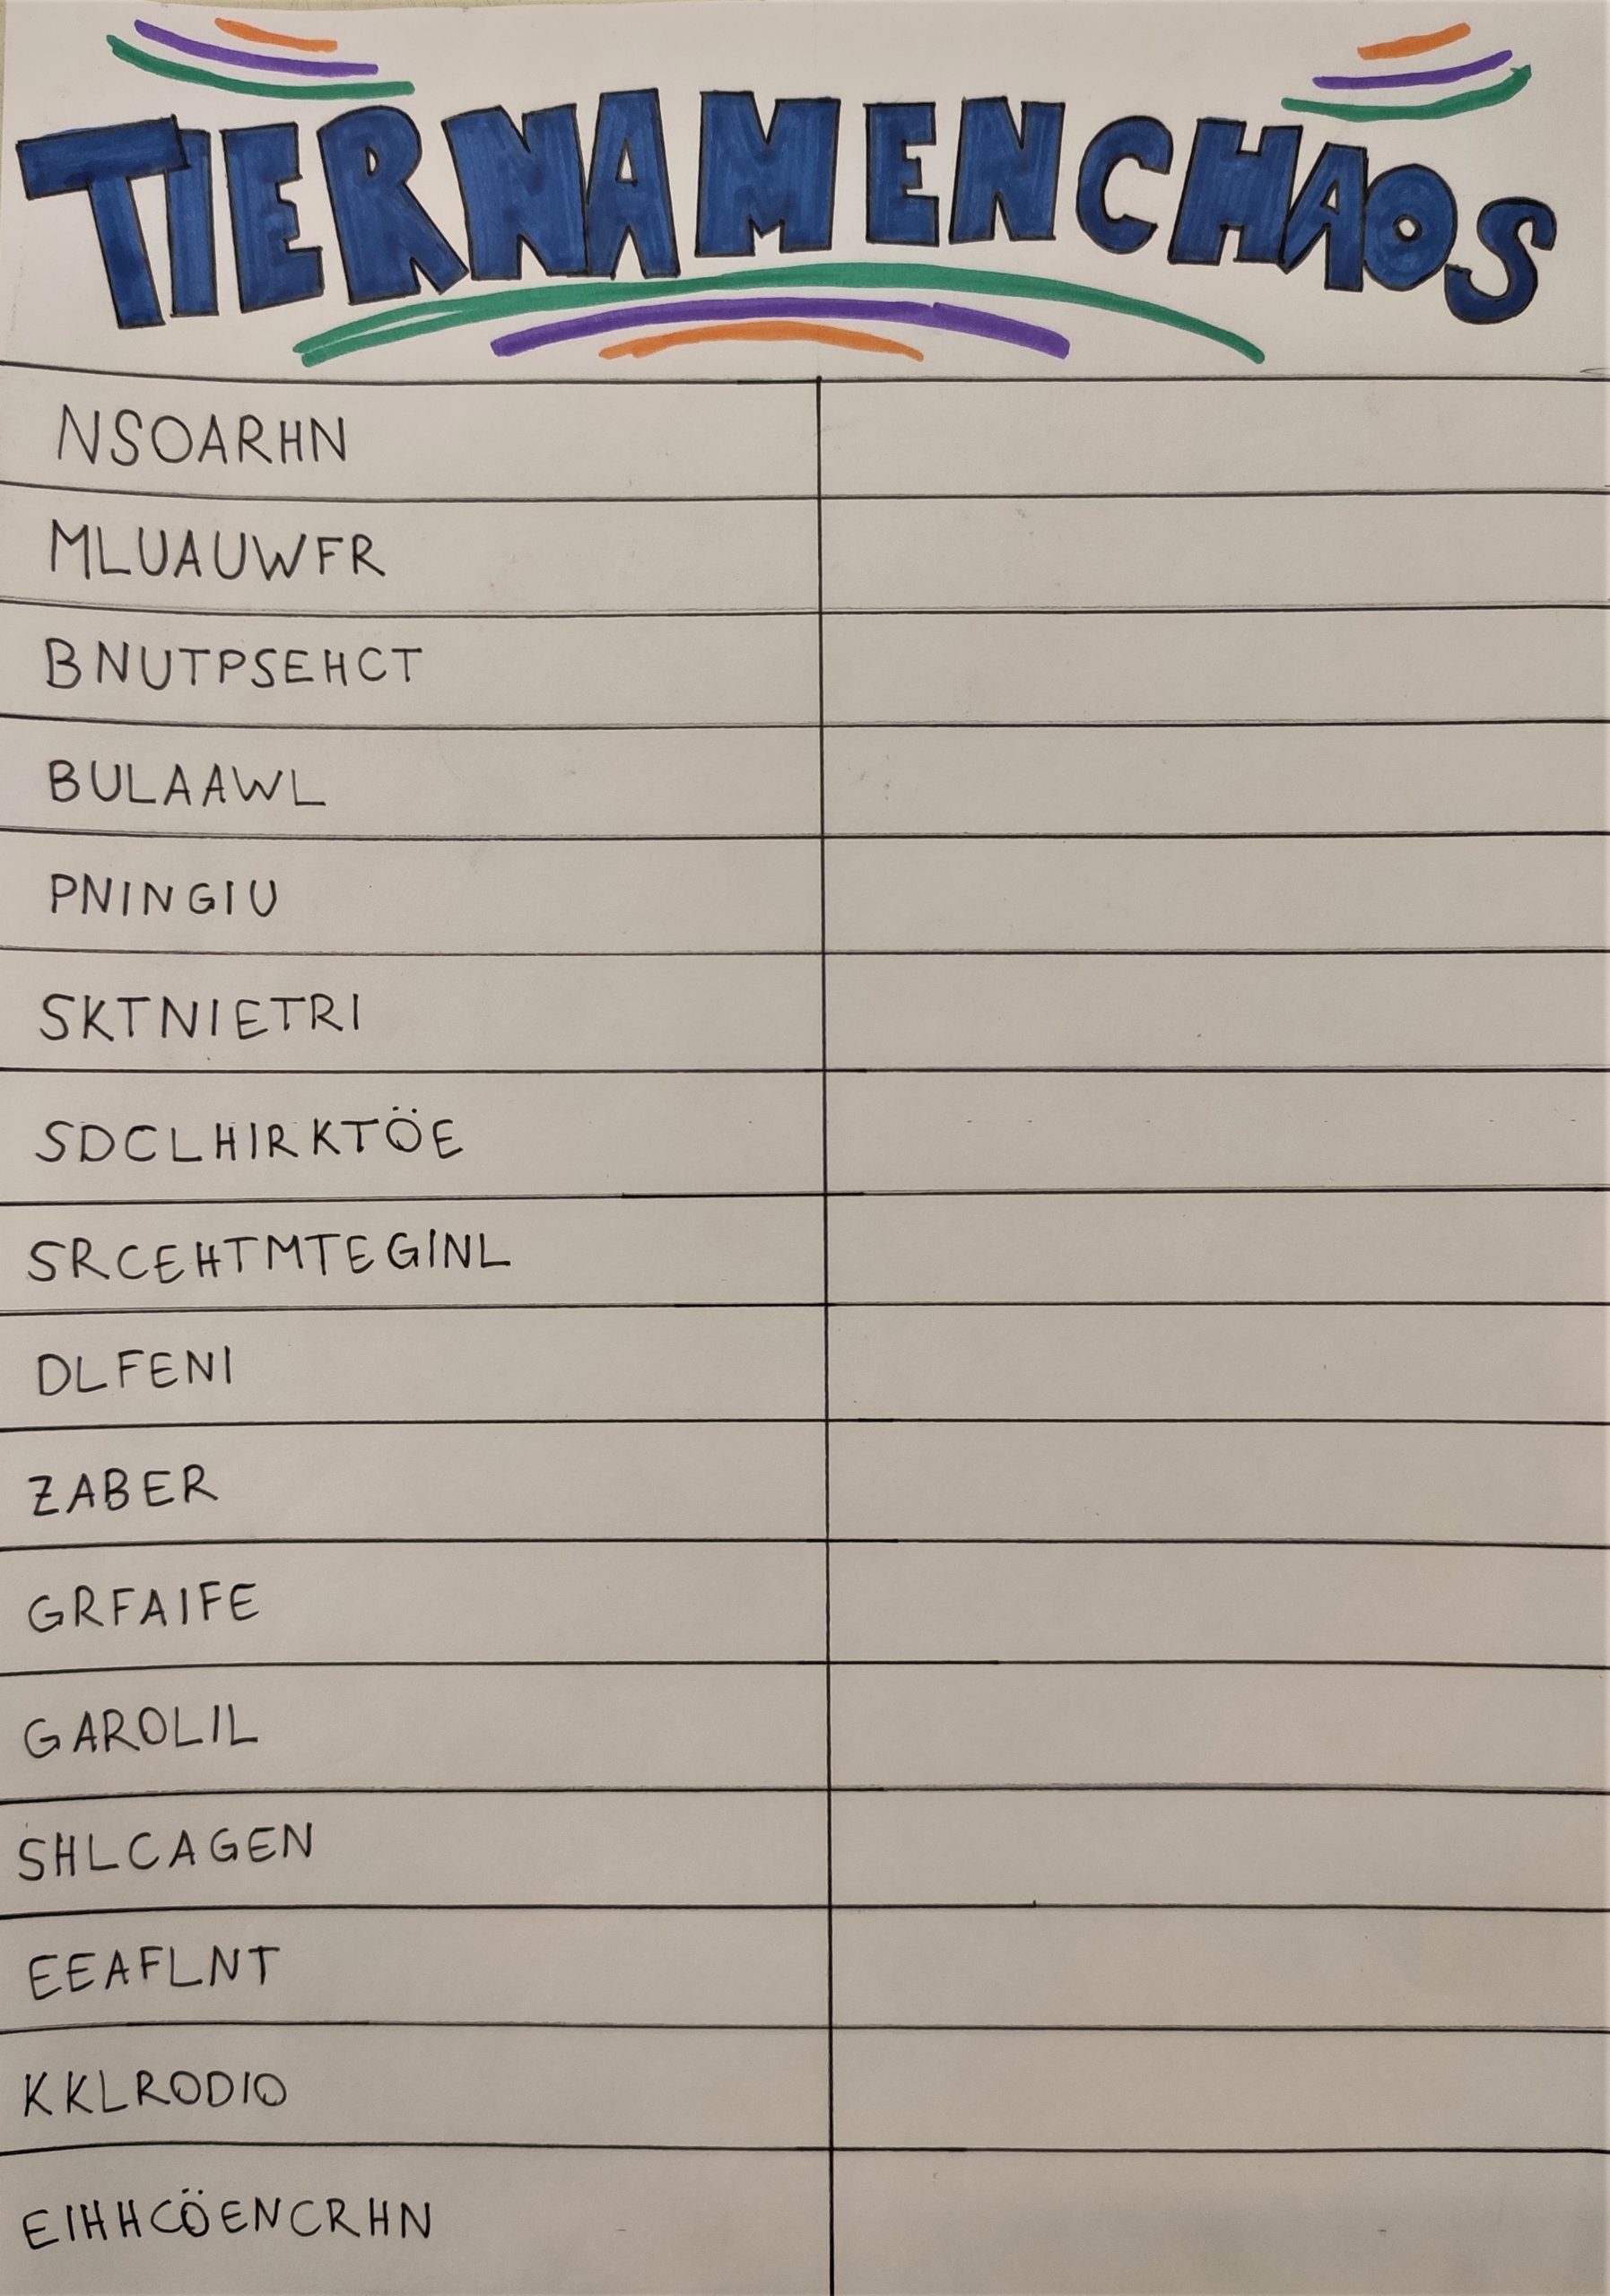 TIERNAMENCHAOS
NSOARHN
MLUAUWFR
BNUTPSEHCT
BULAAWL
PNINGIU
SKTNIETRI
SDCLHIRKTÖE
SRCEHTMTEGINL
DLFENI
ZABER
GRFAIFE
GAROLIL
SHLCAGEN
EEAFLNT
KKLRODIO
EIHHCÖENCRHN